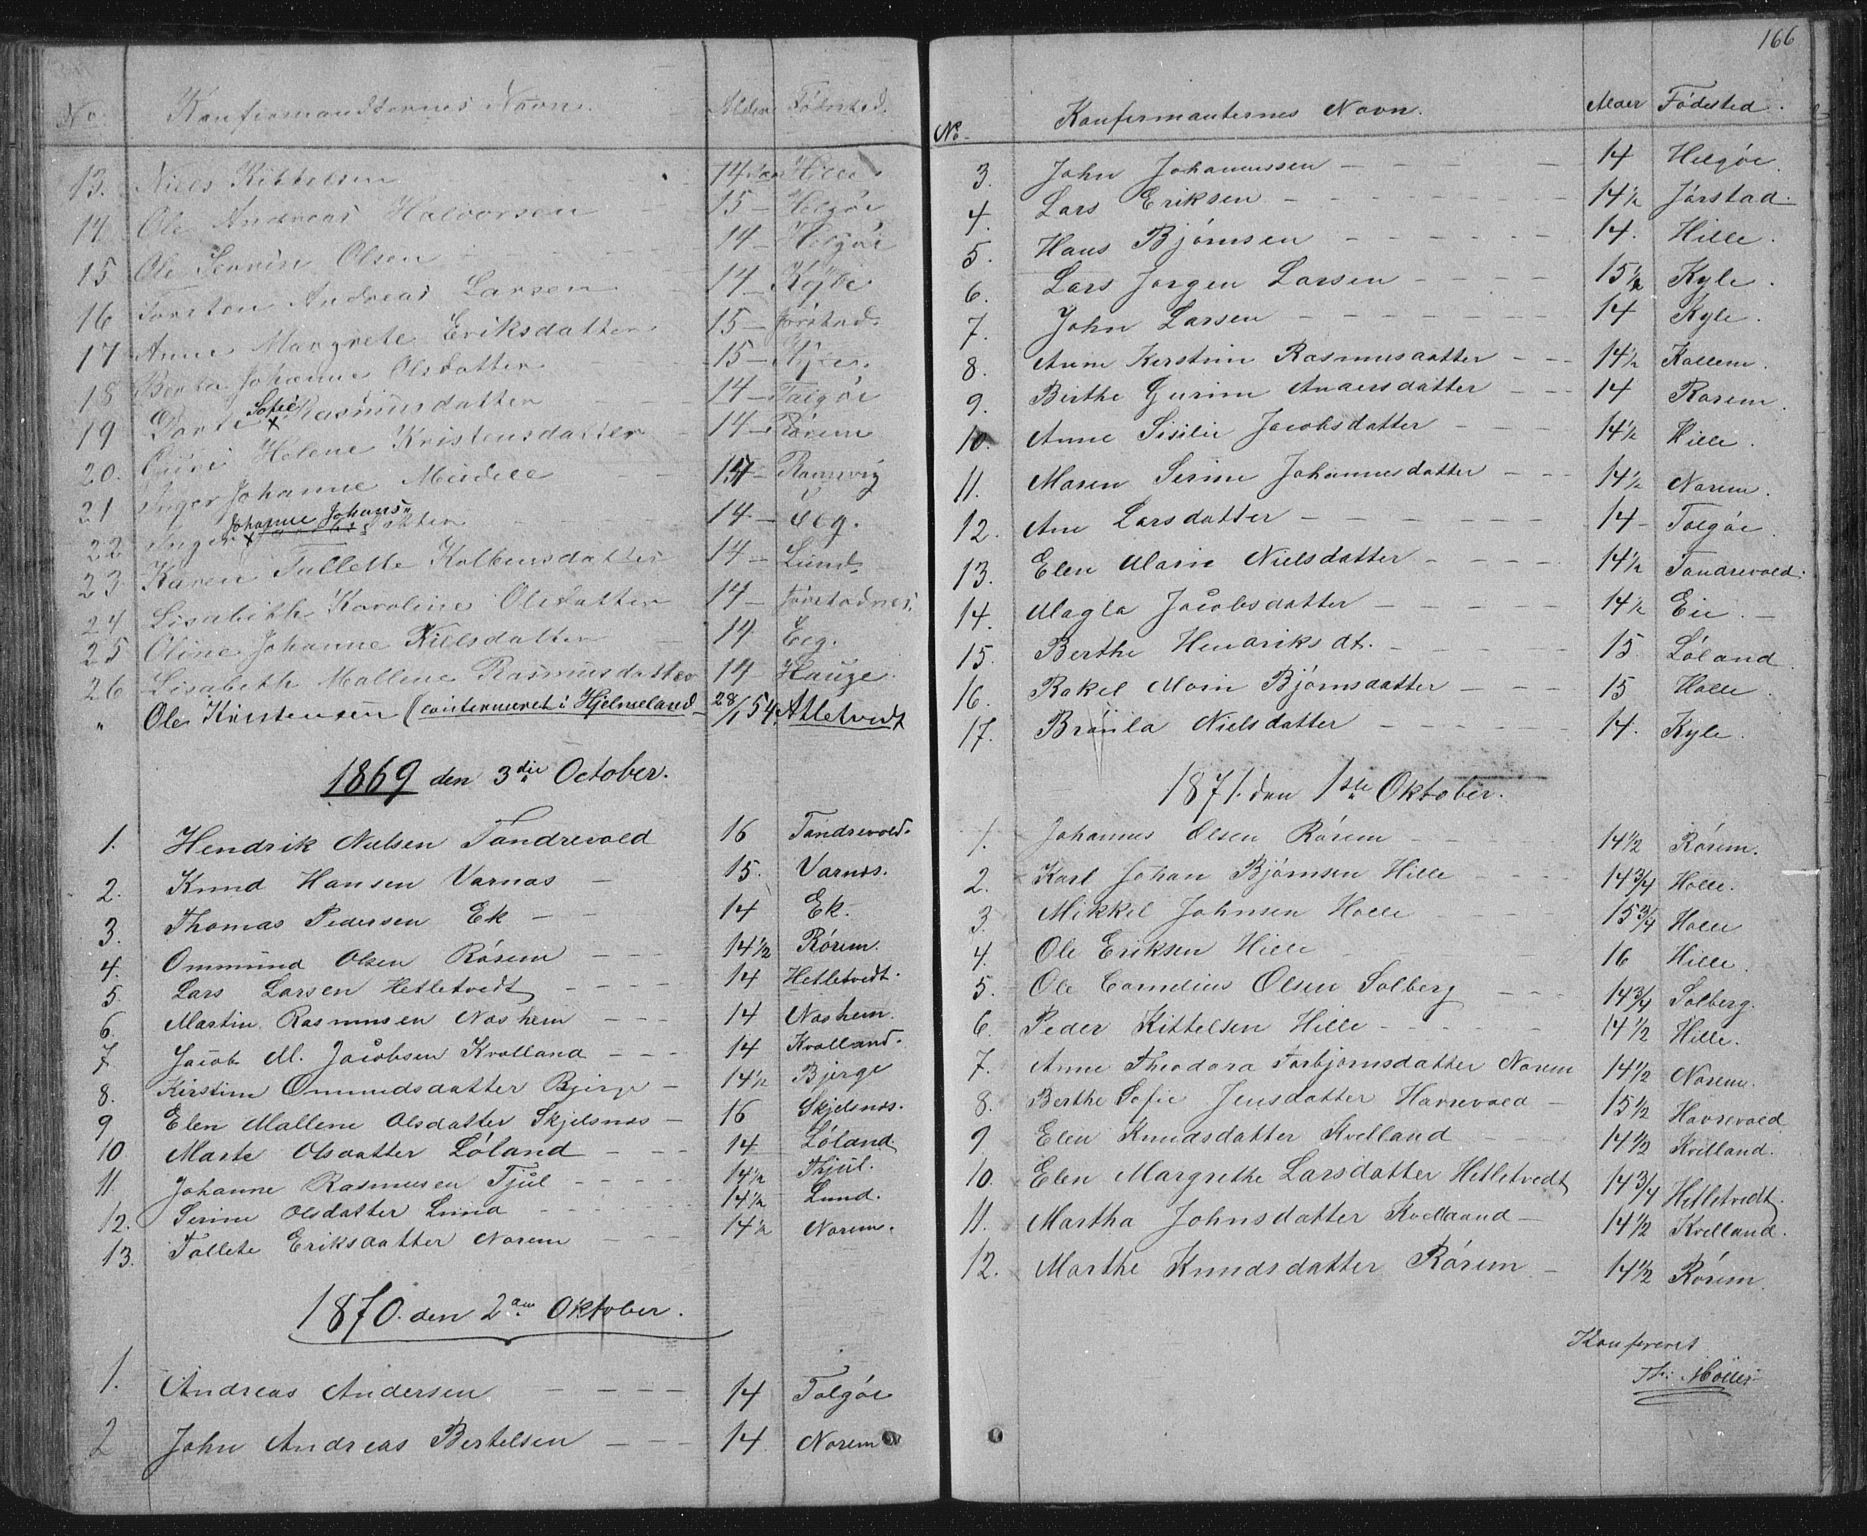 No. Konfirmandternes Navn. Alder Fødested.
13. Niels Kittelsen 14 Aar Hille
14 Ole Andreas Halvorsen 15 — Helgøe
15 Ole Severin Olsen 14 — Helgøe
16 Torsten Andreas Larsen 14 —
17 Anne Margrete Eriksdatter 15 — Jørstad.
18 Berta Johanne Olsdatter 15 —
19 Dorte Sofie Rasmusdatter 14 — Talgøe
20. Guri Helene Kristensdatter 14 — Rørem
21 Inger Johanne Meidell Ramsvig
22 Inger Johanne Johans datter 14 — Eeg.
23 Karen Tallette Kolbensdatter 14 — Lund.
24 Lisabeth Karoline Olsdatter 14 — Jørstadnes.
25 Oline Johanne Nielsdatter 14 Eeg.
26 Lisabeth Mallene Rasmusdatter 14 Hauge.
" Ole Kristensen (confirmeret i Hjelmeland 28/1 54. Atletvedt
1869 den 3die October.
1. Hendrik Nielsen Tandrevold 16 Tandrevold.
2. Knud Hansen Varnas — 15. Varnes.
3. Thomas Pedersen Ek — — 14 Ek.
4. Ommund Olsen Rørem — — — 14 1/2 Rørem.
5. Lars Larsen Hetletvedt — — — — 14 Hetletvedt.
6. Martin Rasmusen Nashem — — — 14 Nashem.
7. Jacob M. Jacobsen Kvalland — — — 14 Kvalland.
8. Kirstine Ommundsdatter Bjerge — 14 1/2 Bjerge
9 Elen Mallene Olsdatter Skjelsnæs — 16 Skjelsnæs.
10. Marte Olsdatter Løland — — — 14 Løland
11 Johanne Rasmusen Tjul — — — — 14 1/2 Thjul.
12. Serine Olsdatter Lund 14 1/2 Lund.
13. Tallete Eriksdatter Norem — — — 14 1/2 Norem.
1870. den 2den Oktober.
1. Andreas Andersen — — — — 14 Talgøe
2 John Andreas Bertelsen — — — 14 Norem
166
No. Konfirmanternes Navn. Alder Fødested.
3. John Johannessen — — — 14 Helgøe.
4. Lars Eriksen — — — — — — 14 1/2 Jørstad.
5. Hans Bjørnsen — — — — — — 14. Hille.
6. Lars Jørgen Larsen — — — — 15 1/2 Kyle.
7. John Larsen — — — — — — — 14 Kyle.
8. Anne Kerstine Rasmusdatter — — — 14 1/2 Hallem.
9. Birthe Gurine Andersdatter — — — 14 Rørem.
10. Anne Sisilie Jacobsdatter — — — 14 1/2 Hille.
11. Maren Serine Johannesdatter — — — 14 1/2 Norem.
12. Ane Larsdatter — — — — — — 14 — Talgøe.
13. Elen Marie Nielsdatter — — — — 14 1/2 Tandrevold.
14. Magla Jacobsdatter — — — — — 14 1/2 Eie. —
15. Berthe Hendriksdt. — — — — — 15 Løland.
16. Rakel Marie Bjørnsdatter — — — 15 Halle.
17. Nielsdatter — — — — — 14. Kyle.
1871. den 1ste Oktober.
1. Johannes Olsen Rørem — — — — 14 1/2 Rørem.
2. Karl Johan Bjørnsen Hille — — — 14 3/4 Halle.
3. Mikkel Johnsen Halle — — 15 3/4 Halle
4. Ole Eriksen Hille — — 16 Hille.
5. Ole Cornelius Olsen Solberg — — — 14 3/4 Solberg.
6. Peder Kittelsen Hille — — — — — 14 1/2 Hille.
7. Anne Theodora Torbjørnsdatter Norem 14 1/2 Norem.
8. Berthe Sofie Jensdatter Havrevold — 15 1/2 Havrevold
9 Elen Knudsdatter Kvelland — 14 1/2 Kvelland.
10. Elen Margrethe Larsdatter Hetletvedt 14 3/4 Hetletvedt.
11. Martha Johnsdatter Kvelland — 14 1/2 Kvelland.
12. Marthe Knudsdatter Rørem — 14 1/2 Rørem.
Konfereret
Th: Møller